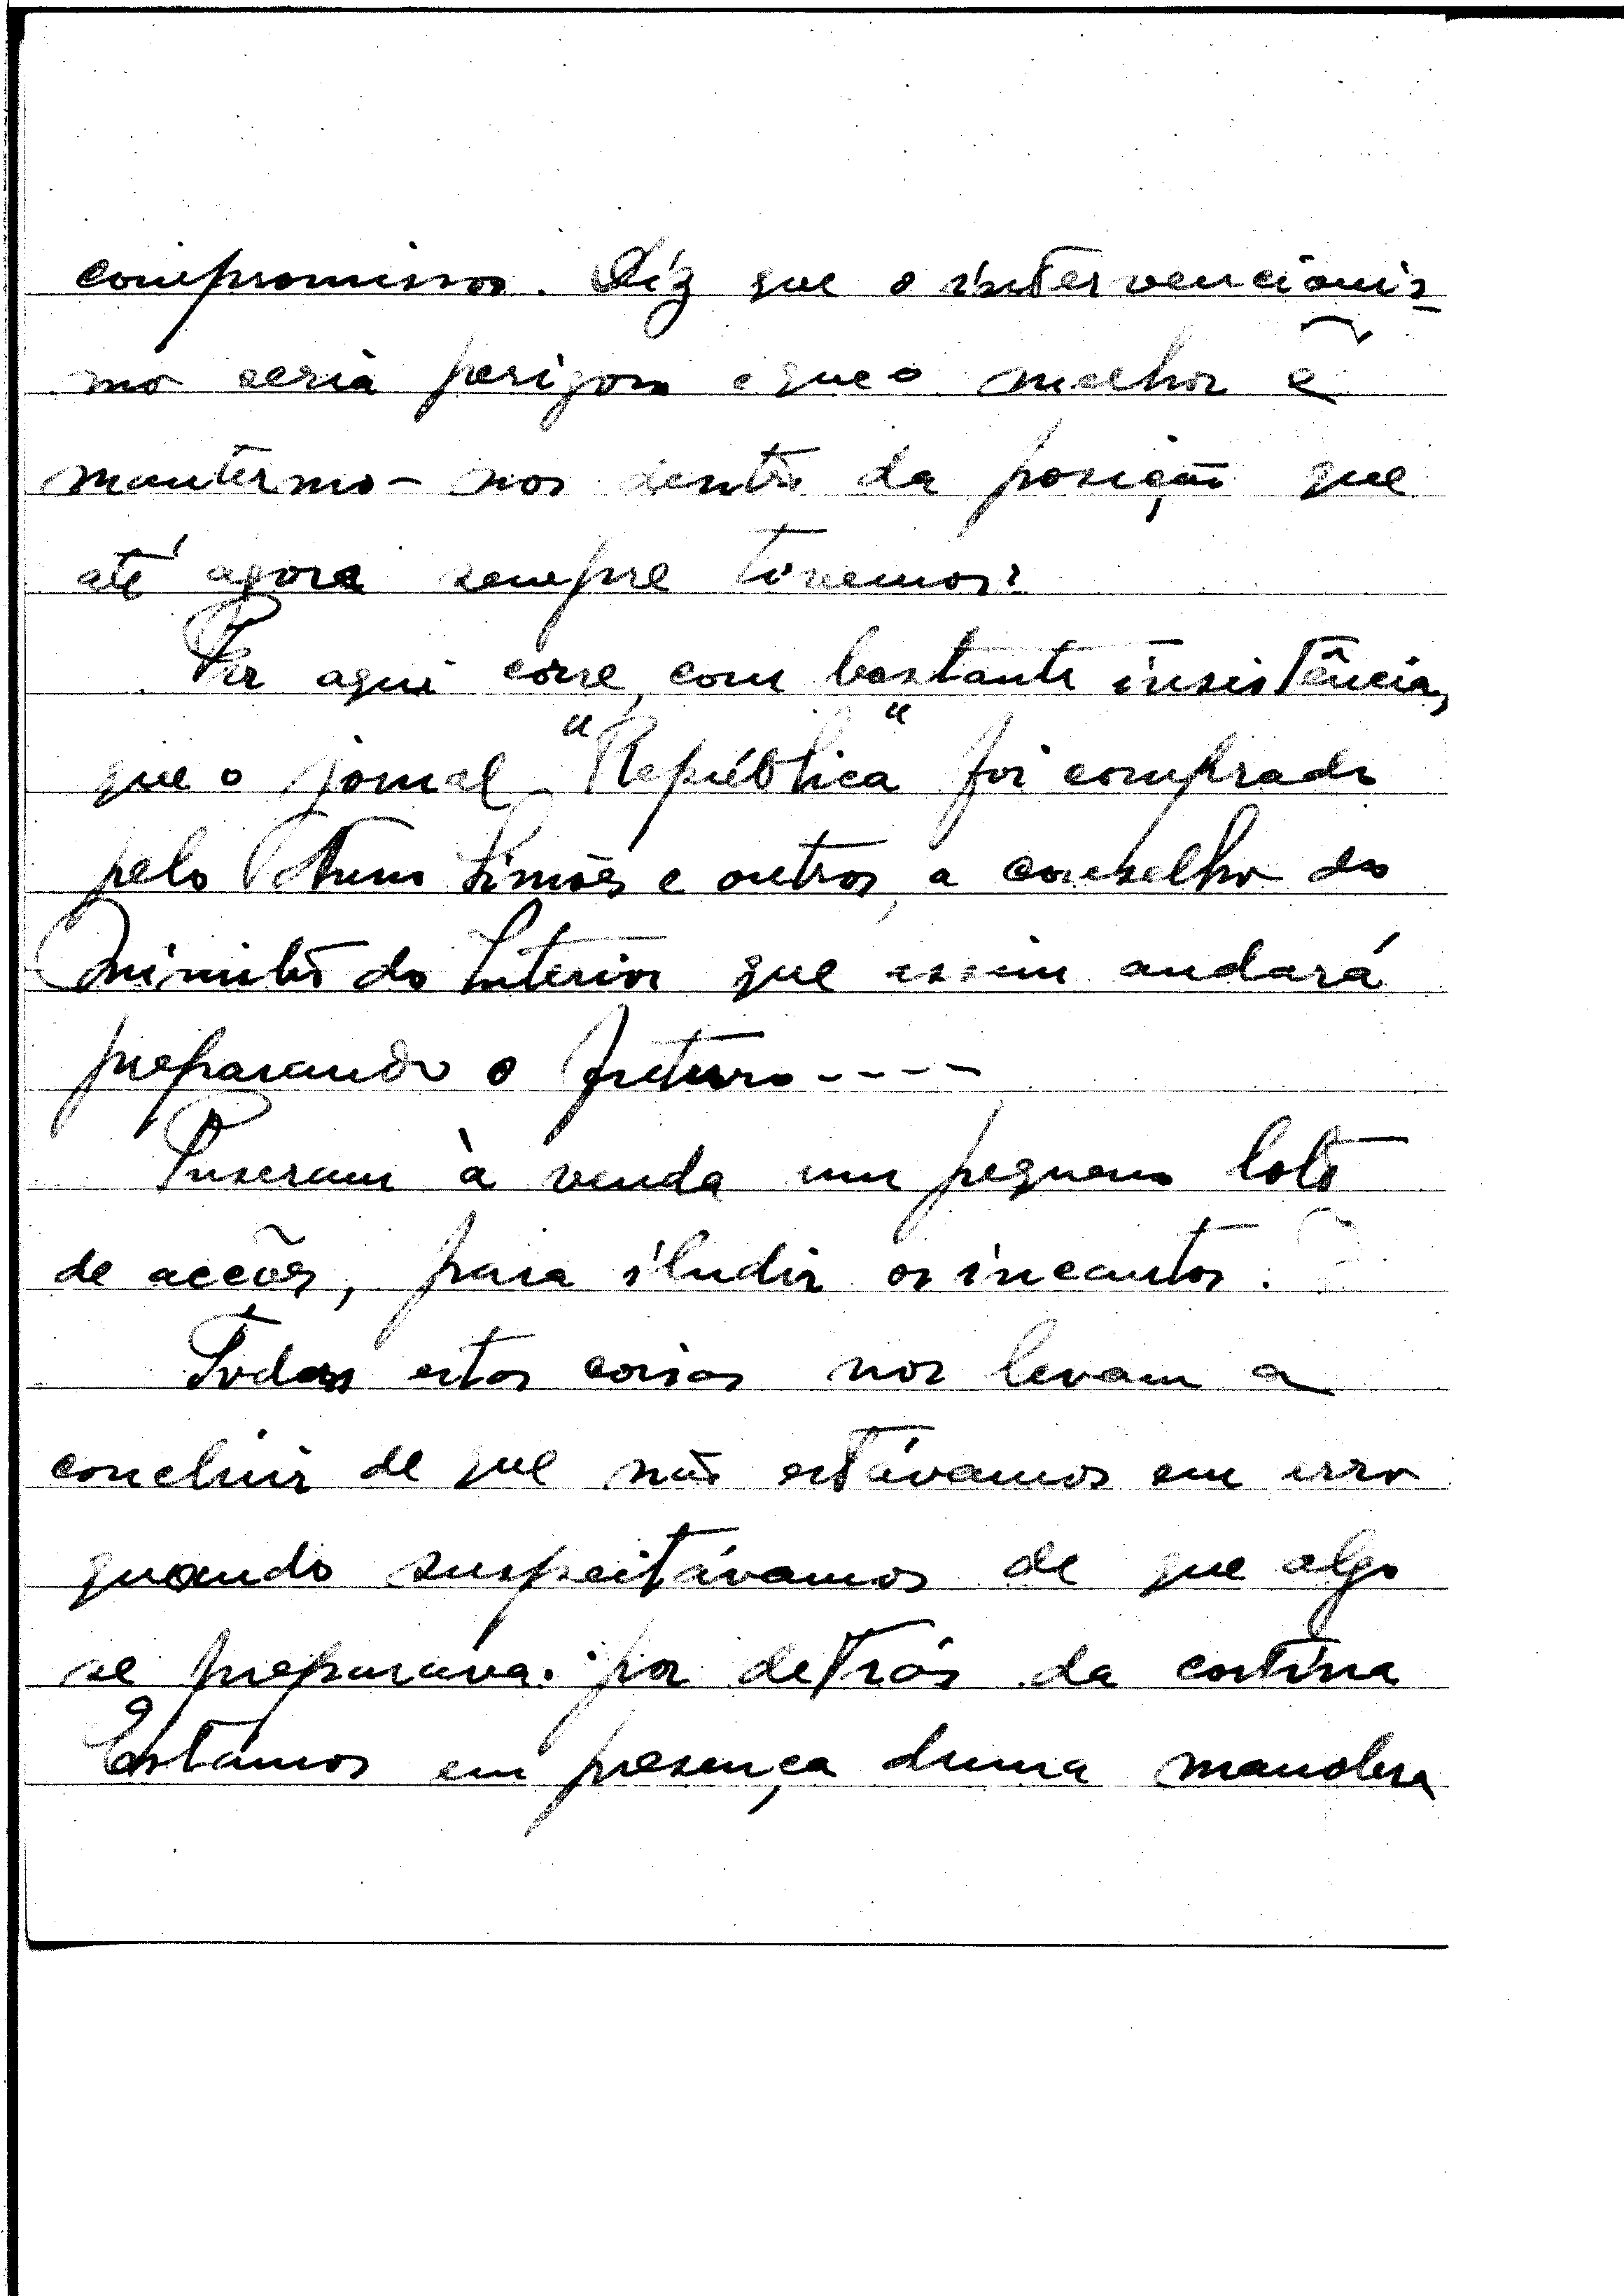 compromissos. Diz que o intervencionis-
mo seria perigoso e que o melhor é
mantermo-nos dentro da posição que
até agora sempre tivemos.
Por aqui corre, com bastante insistência,
que o jornal "República" foi comprado
pelo Nuno Simões e outros, a conselho do
Ministro do Interior que assim andará
preparando o futuro----
Puseram à venda um pequeno lote
de acções, para iludir os incautos.
Todas estas coisas nos levam a
concluir de que não estávamos em erro
quando suspeitávamos de que algo
se preparava por detrás da cortina
Estamos em presença duma manobra